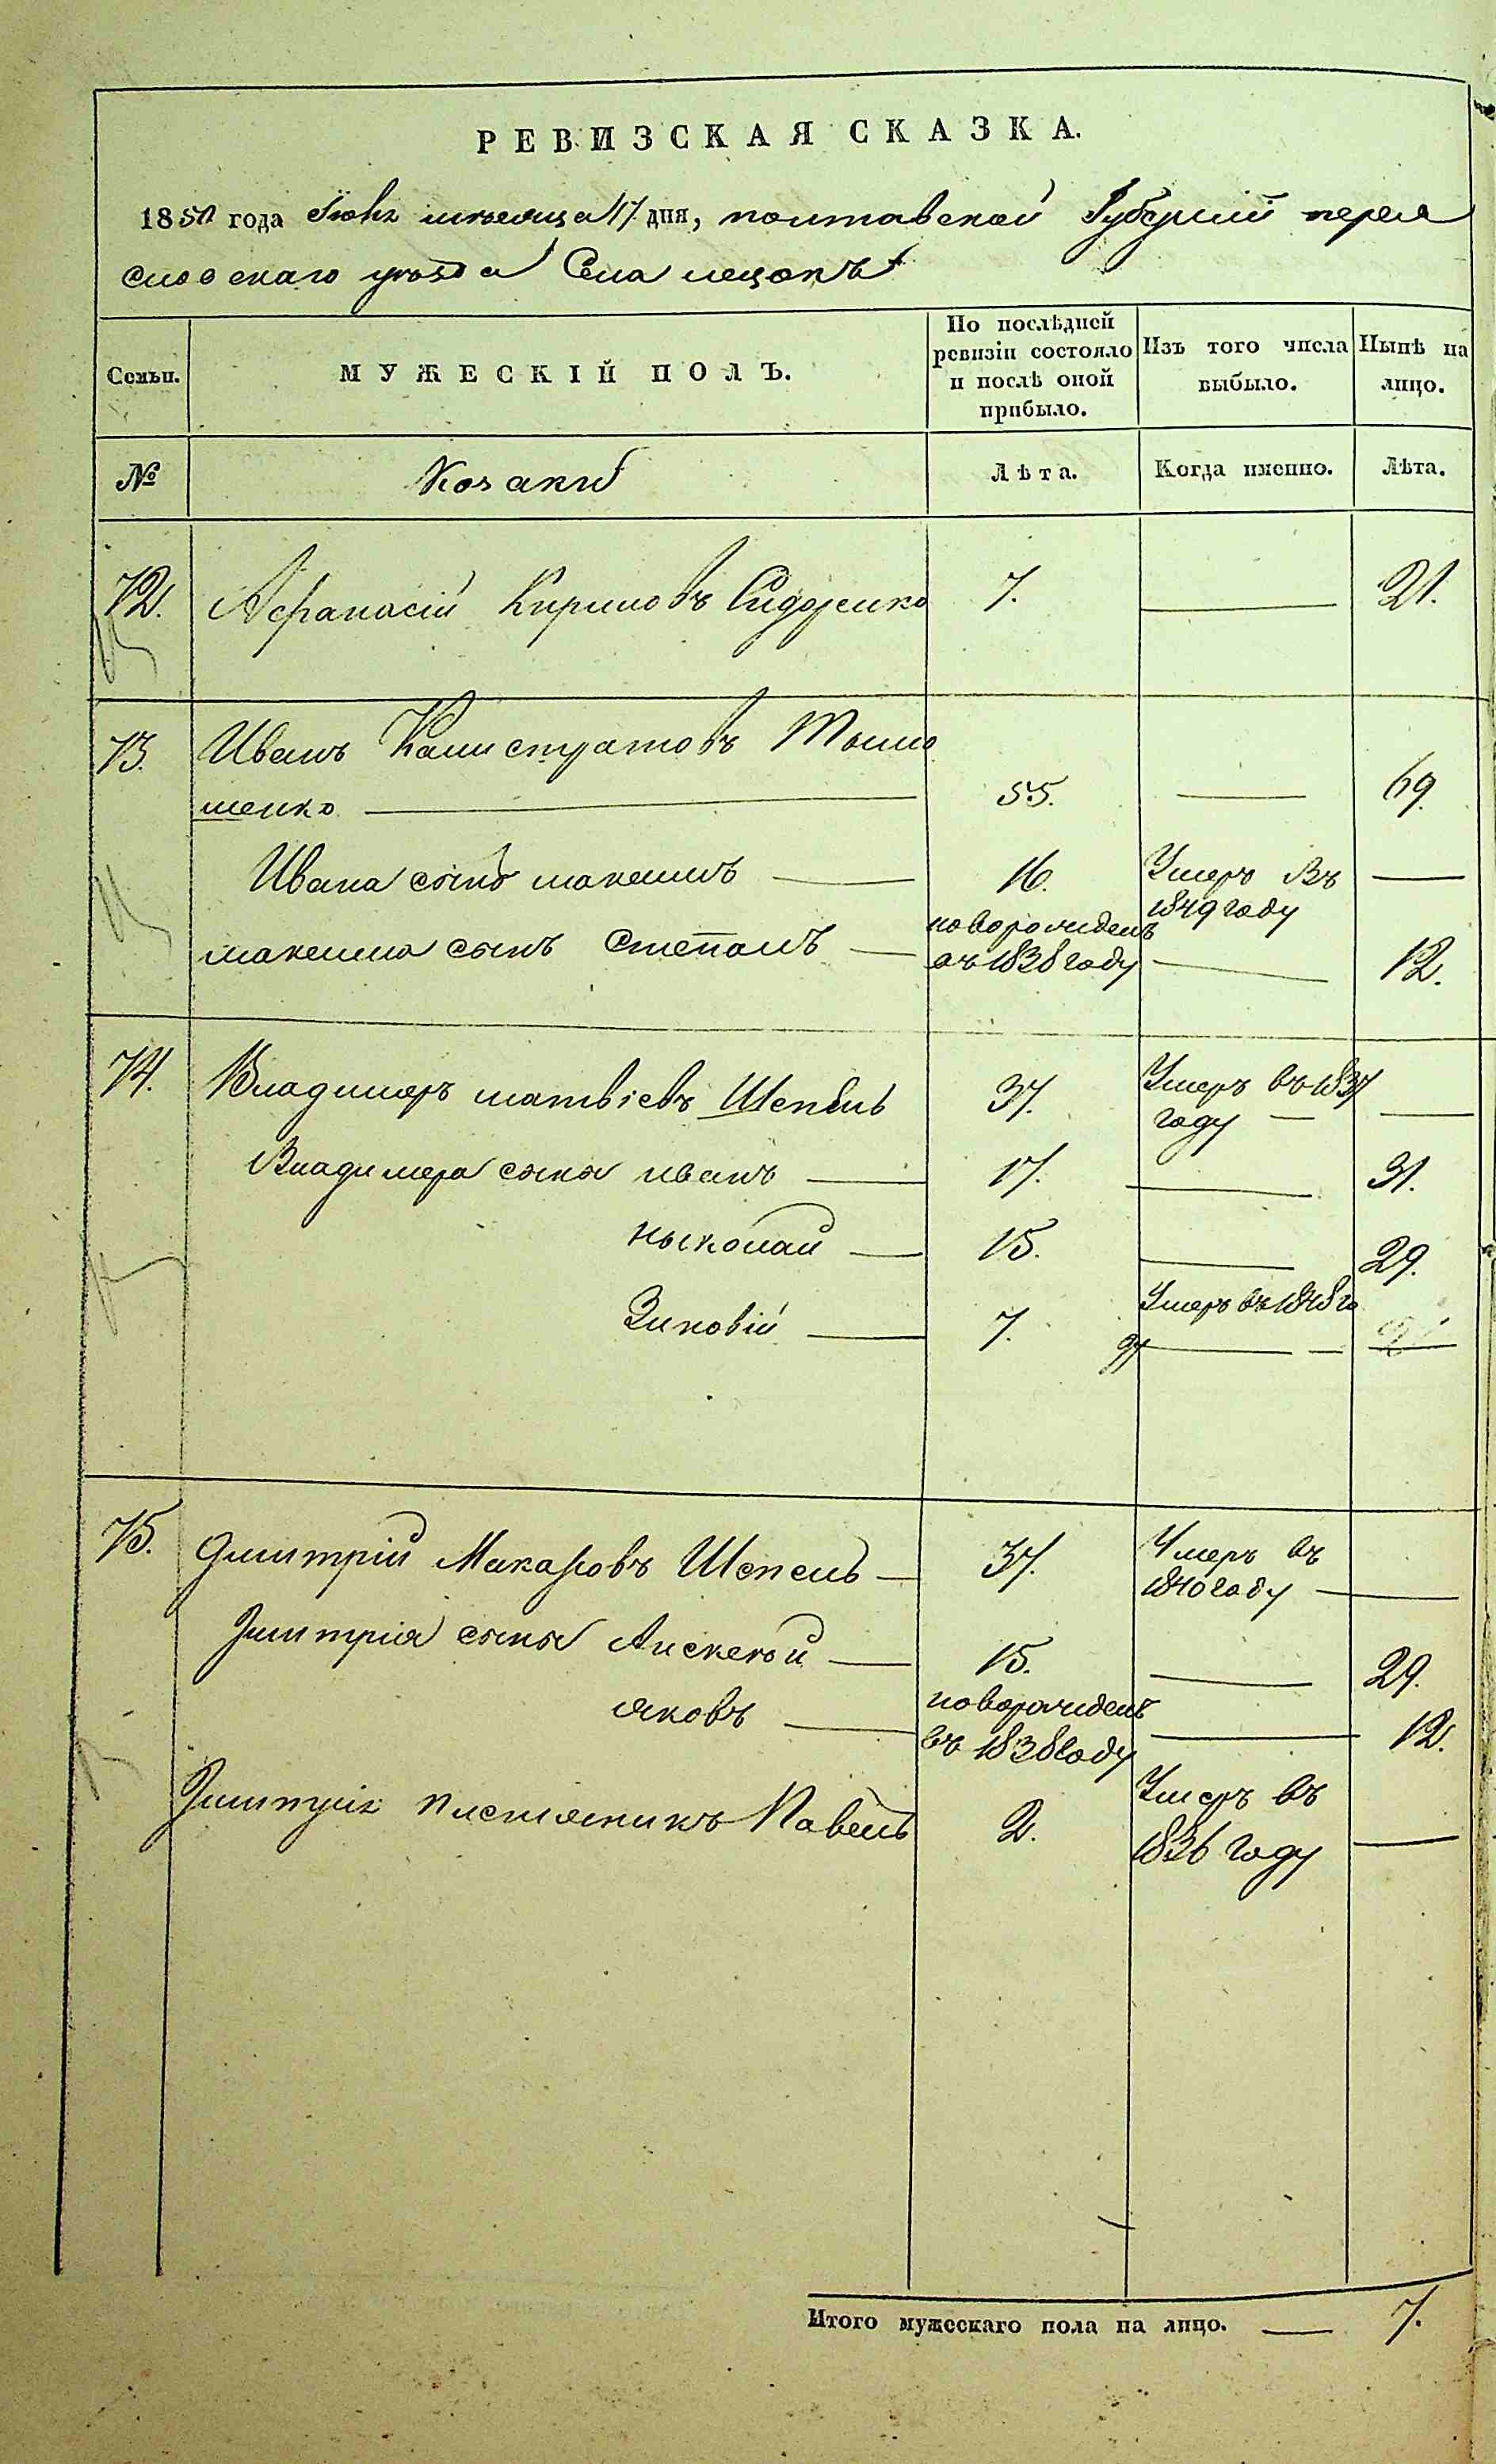 РЕВИЗСКАЯ СКАЗКА.
1850 года Июля мѣсяца 17 дня, полтавской Губерніи перея
словскаго уѣзда Села лецокъ
Семьи.
МУЖЕСКІЙ ПОЛЪ.
По послѣдней
ревизіи состояло
и послѣ оной
прибыло.
Изъ того числа
выбыло.
Нынѣ на
лицо.
№
Козаки
Лѣта.
Когда именно.
Лѣта.
72. Афанасій Кириловъ Сидоренко 7. 21.
73. Иванъ Калистратовъ Тимо
шенко 55. 69.
Ивана сынъ максимъ 16. Умеръ въ
1849 году
максима сынъ Степанъ новорожденъ
въ 1838 году 12.
74. Владимеръ матвіевъ Шепель 37. Умеръ въ 1837
году
Владимера сыны иванъ 17. 31.
ныколай 15. 29.
Зиновій 7. Умеръ въ 1848 го
ду
75. Дмитрій Макаровъ Шепель 37. Умеръ въ
1840 году
Дмитрія сыны Алексѣй 15. 29.
яковъ новорожденъ
въ 1838 году 12.
Дмитрія племяникъ Павелъ 2. Умеръ въ
1836 году
Итого мужескаго пола на лицо. 7.